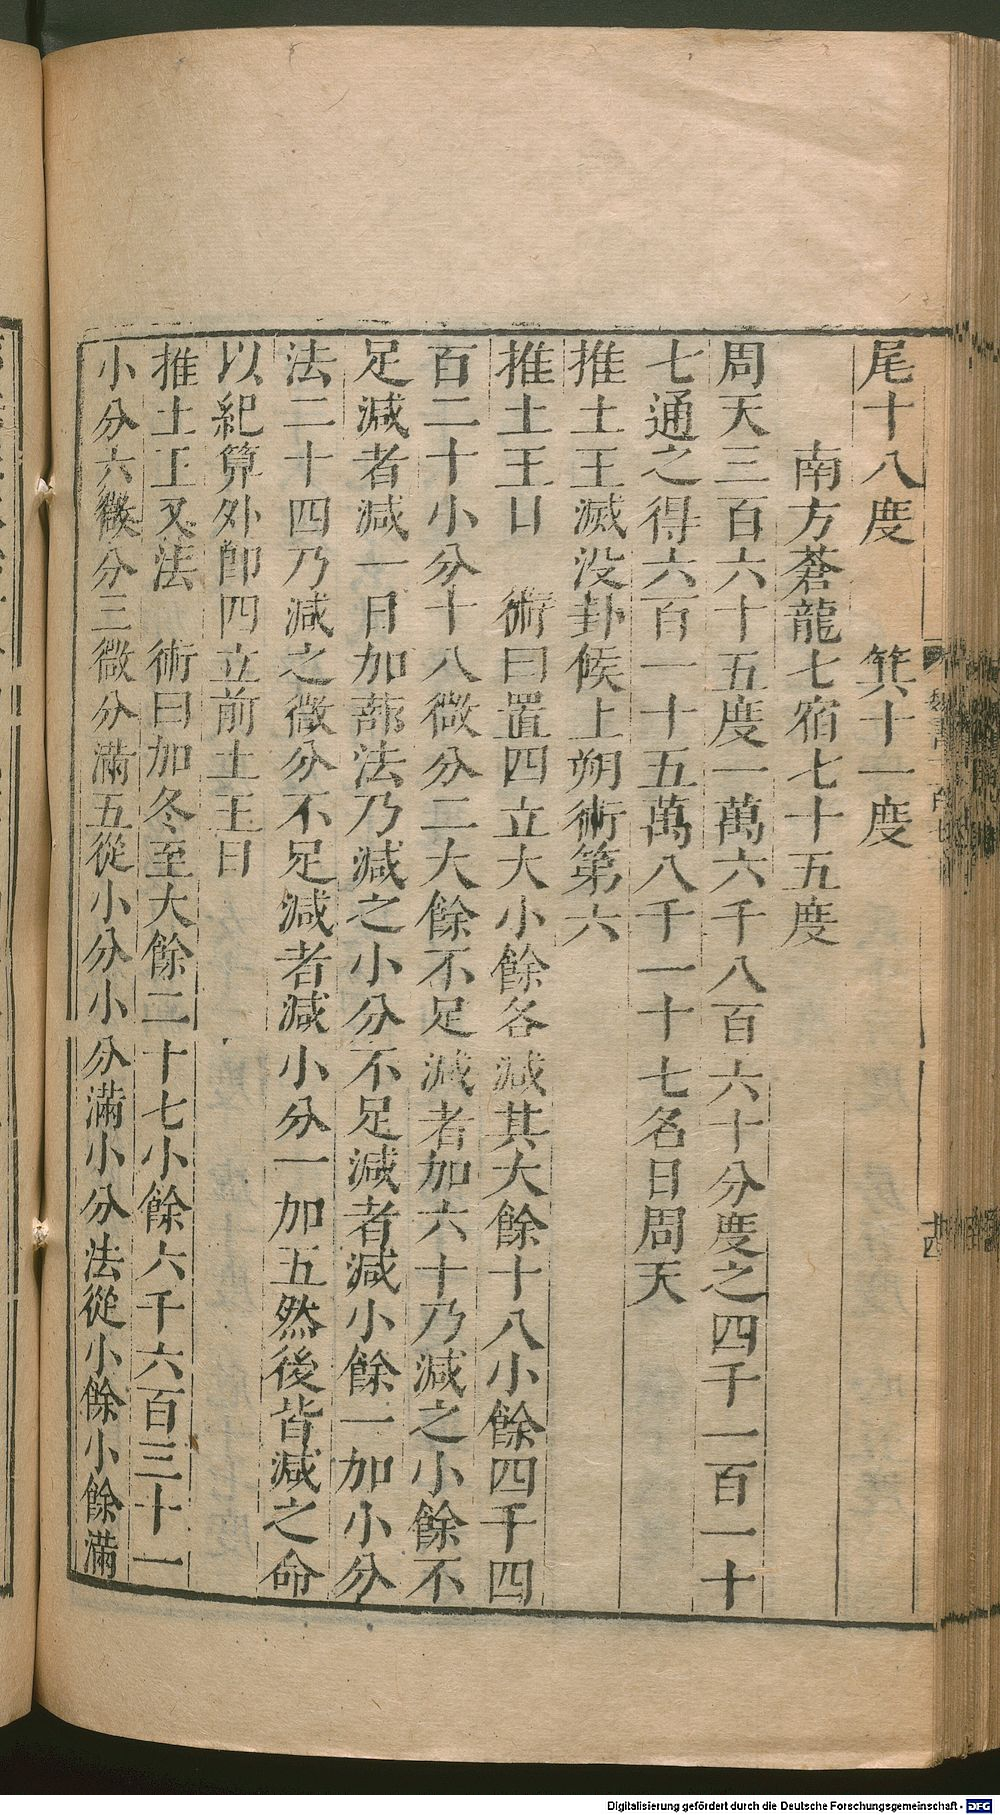 尾十八度　箕十一度
南方蒼龍七宿七十五度
周天三百六十五度一萬六千八百六十分度之四千一百一十
七通之得六百一十五萬八千一十七名曰周天
推土王滅没卦候上朔術第六
推土王日　術曰置四立大小餘各減其大餘十八小餘四千四
百二十小分十八微分二大餘不足減者加六十乃減之小餘不
足減者減一日加蔀法乃減之小分不足減者減小餘一加小分
法二十四乃減之微分不足減者減小分一加五然後皆減之命
以紀算外即四立前土王日
推土王又法　術曰加冬至大餘二十七小餘六千六百三十一
小分六微分三微分滿五從小分小分滿小分法從小餘小餘滿
魏書
十四
Digitalisierung gefördert durch die Deutsche Forschungsgemeinschaft - DFG